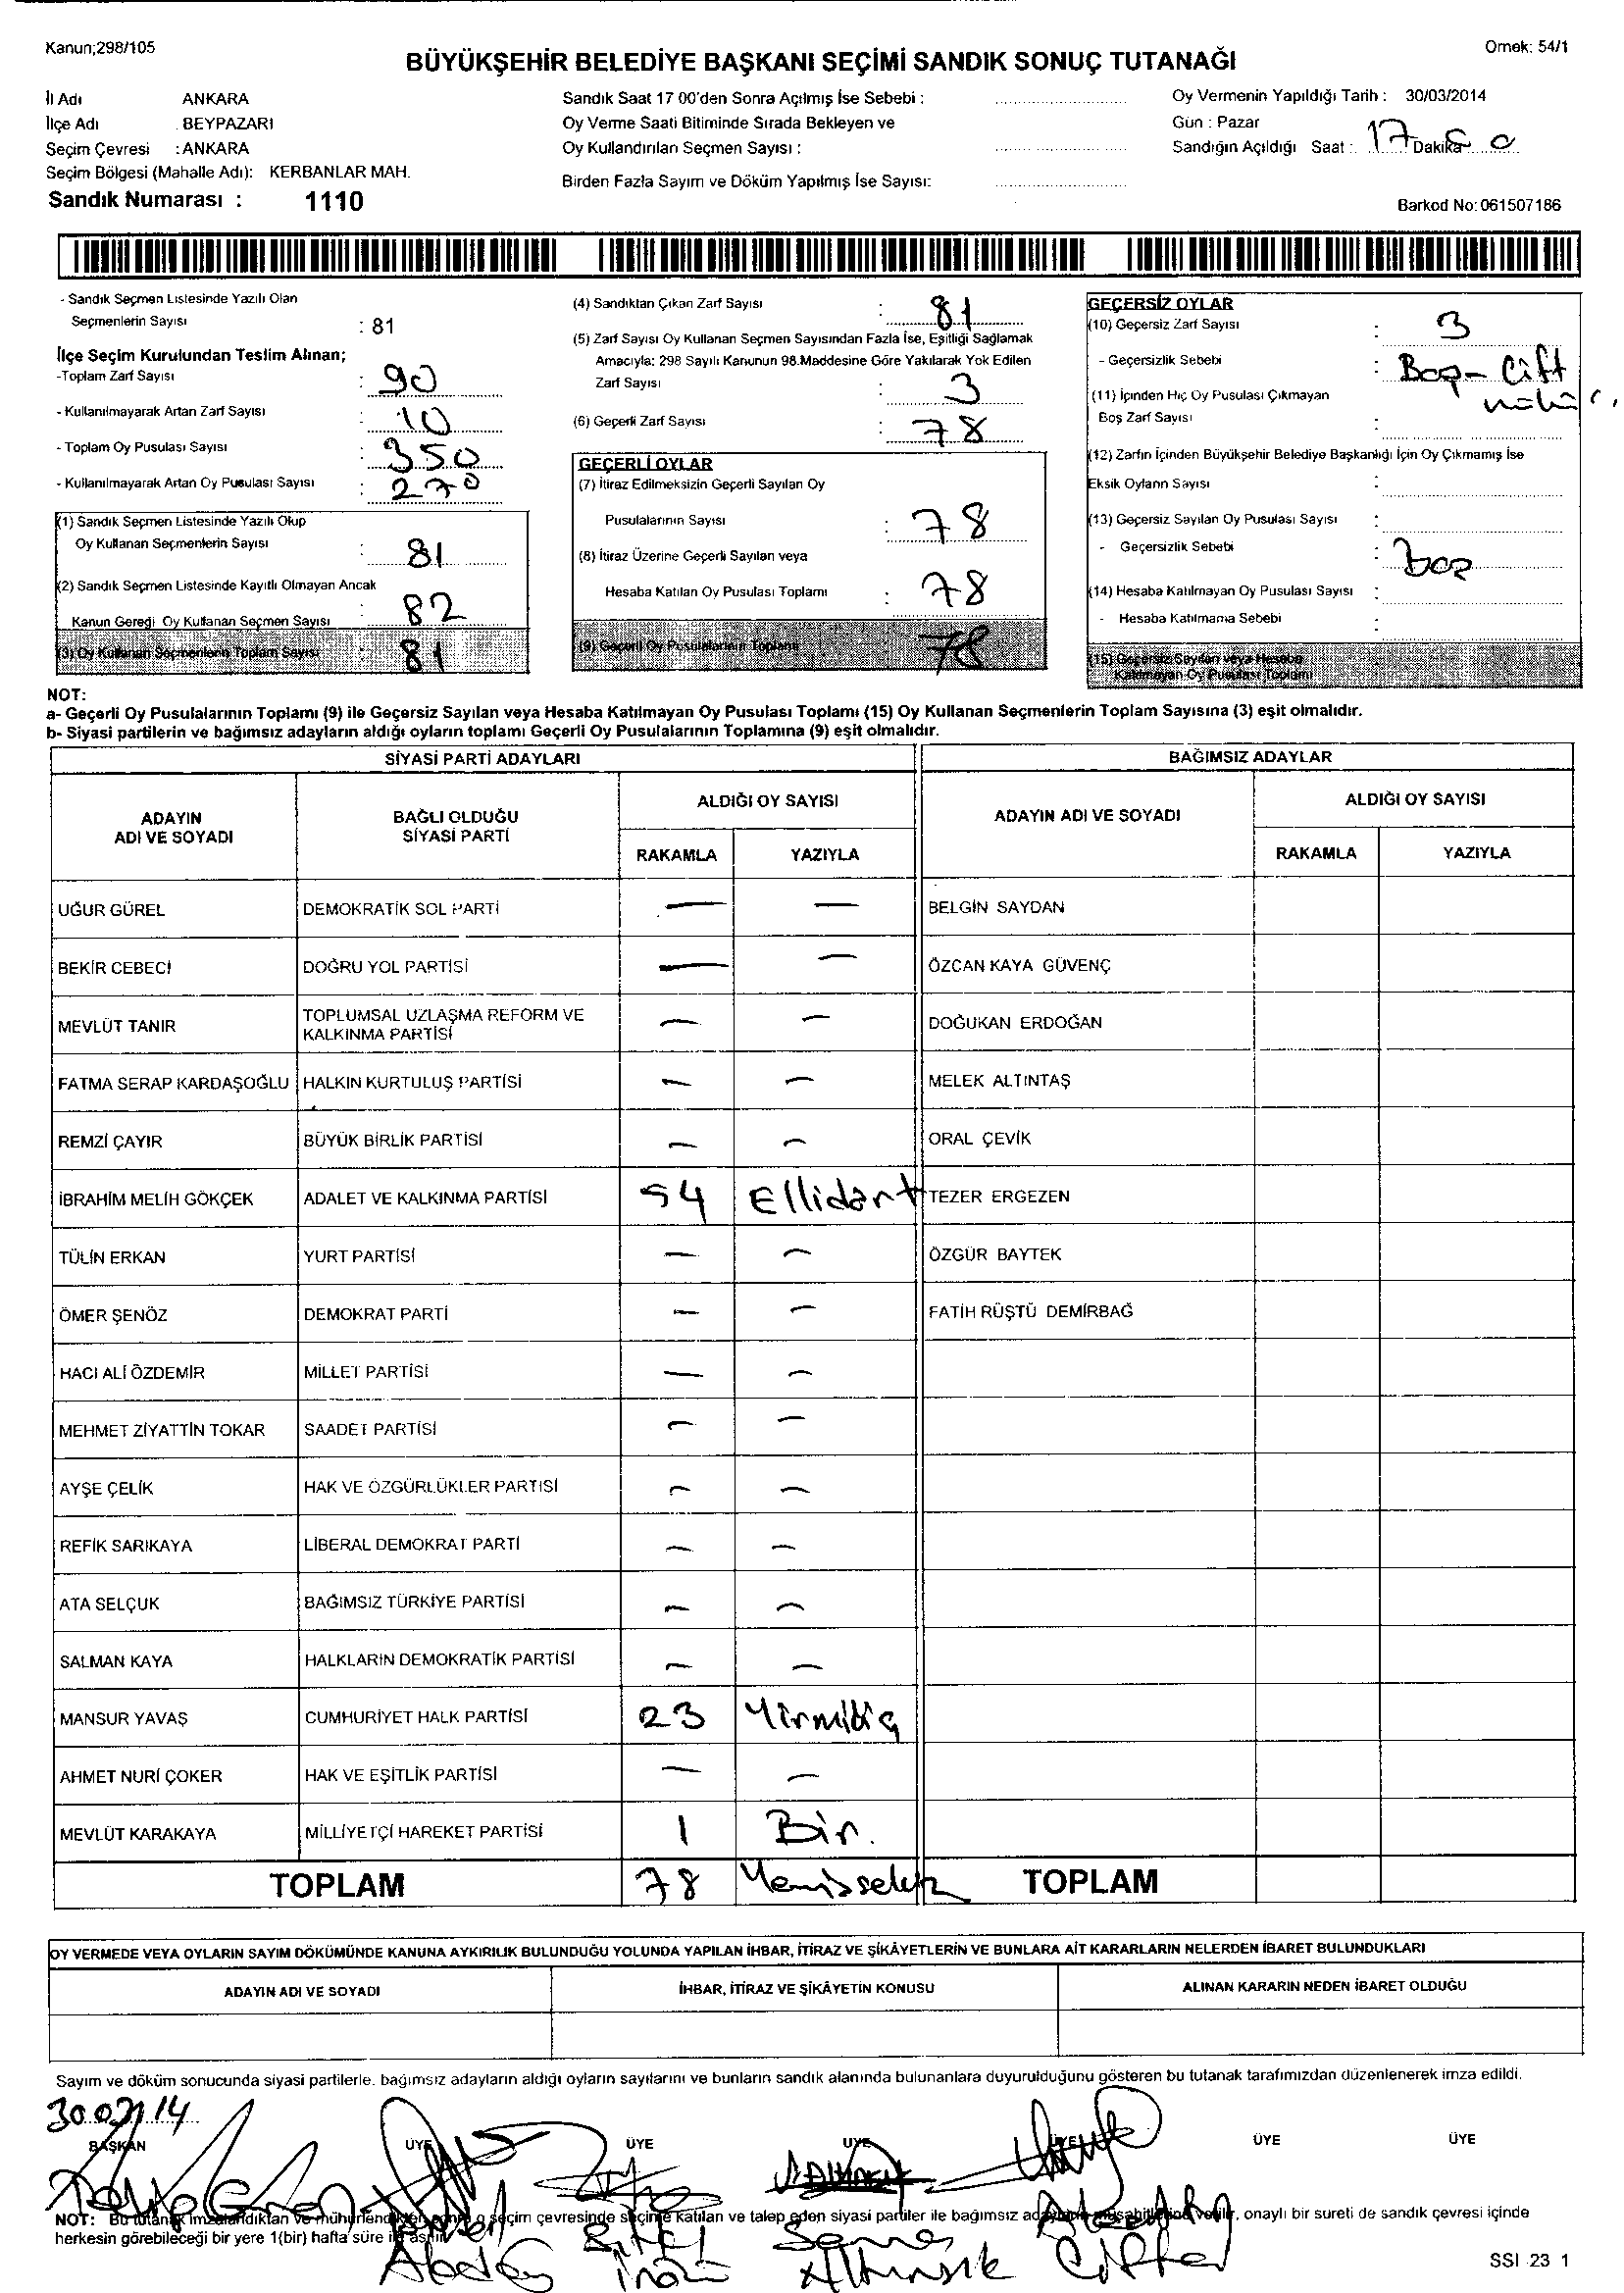 Kanun;298/105
Ornek: 54/1
BÜYÜKŞEHİR BELEDİYE BAŞKANI SEÇİMİ SANDIK SONUÇ TUTANAĞI
İl Adı ANKARA
İlçe Adı . BEYPAZARI
Seçim Çevresi : ANKARA
Seçim Bölgesi (Mahalle Adı): KERBANLAR MAH.
Sandık Numarası : 1110
Sandık Saat 17 00'den Sonra Açılmış İse Sebebi :
Oy Verme Saati Bitiminde Sırada Bekleyen ve
Oy Kullandırılan Seçmen Sayısı :
Birden Fazla Sayım ve Döküm Yapılmış İse Sayısı:
Oy Vermenin Yapıldığı Tarih : 30/03/2014
Gün : Pazar
Sandığın Açıldığı Saat : 17 Dakika
Barkod No: 061507186
- Sandık Seçmen Listesinde Yazılı Olan
Seçmenlerin Sayısı : 81
İlçe Seçim Kurulundan Teslim Alınan;
-Toplam Zarf Sayısı : 90
- Kullanılmayarak Artan Zarf Sayısı : 10
- Toplam Oy Pusulası Sayısı : 350
- Kullanılmayarak Artan Oy Pusulası Sayısı : 270
(1) Sandık Seçmen Listesinde Yazılı Olup
Oy Kullanan Seçmenlerin Sayısı : 81
(2) Sandık Seçmen Listesinde Kayıtlı Olmayan Ancak
Kanun Gereği Oy Kullanan Seçmen Sayısı : 82
(3) Oy Kullanan Seçmenlerin Toplam Sayısı : 81
(4) Sandıktan Çıkan Zarf Sayısı : 81
(5) Zarf Sayısı Oy Kullanan Seçmen Sayısından Fazla İse, Eşitliği Sağlamak
Amacıyla: 298 Sayılı Kanunun 98.Maddesine Göre Yakılarak Yok Edilen
Zarf Sayısı : 3
(6) Geçerli Zarf Sayısı : 78
GEÇERLİ OYLAR
(7) İtiraz Edilmeksizin Geçerli Sayılan Oy
Pusulalarının Sayısı : 78
(8) İtiraz Üzerine Geçerli Sayılan veya
Hesaba Katılan Oy Pusulası Toplamı : 78
(9) Geçerli Oy Pusulalarının Toplamı 78
GEÇERSİZ OYLAR
(10) Geçersiz Zarf Sayısı : 3
- Geçersizlik Sebebi : Boş - Çift
(11) İçinden Hiç Oy Pusulası Çıkmayan
Boş Zarf Sayısı :
(12) Zarfın İçinden Büyükşehir Belediye Başkanlığı İçin Oy Çıkmamış İse
Eksik Oyların Sayısı :
(13) Geçersiz Sayılan Oy Pusulası Sayısı :
- Geçersizlik Sebebi : boş
(14) Hesaba Katılmayan Oy Pusulası Sayısı :
- Hesaba Katılmama Sebebi :
(15) Geçersiz Sayılan veya Hesaba
Katılmayan Oy Pusulası Toplamı
NOT:
a- Geçerli Oy Pusulalarının Toplamı (9) ile Geçersiz Sayılan veya Hesaba Katılmayan Oy Pusulası Toplamı (15) Oy Kullanan Seçmenlerin Toplam Sayısına (3) eşit olmalıdır.
b- Siyasi partilerin ve bağımsız adayların aldığı oyların toplamı Geçerli Oy Pusulalarının Toplamına (9) eşit olmalıdır.
SİYASİ PARTİ ADAYLARI BAĞIMSIZ ADAYLAR
ADAYIN ADI VE SOYADI BAĞLI OLDUĞU SİYASİ PARTİ ALDIĞI OY SAYISI ADAYIN ADI VE SOYADI ALDIĞI OY SAYISI
RAKAMLA YAZIYLA RAKAMLA YAZIYLA
UĞUR GÜREL DEMOKRATİK SOL PARTİ — — BELGİN SAYDAN
BEKİR CEBECİ DOĞRU YOL PARTİSİ — — ÖZCAN KAYA GÜVENÇ
MEVLÜT TANIR TOPLUMSAL UZLAŞMA REFORM VE KALKINMA PARTİSİ — — DOĞUKAN ERDOĞAN
FATMA SERAP KARDAŞOĞLU HALKIN KURTULUŞ PARTİSİ — — MELEK ALTINTAŞ
REMZİ ÇAYIR BÜYÜK BİRLİK PARTİSİ — — ORAL ÇEVİK
İBRAHİM MELİH GÖKÇEK ADALET VE KALKINMA PARTİSİ 54 Ellidört TEZER ERGEZEN
TÜLİN ERKAN YURT PARTİSİ — — ÖZGÜR BAYTEK
ÖMER ŞENÖZ DEMOKRAT PARTİ — — FATİH RÜŞTÜ DEMİRBAĞ
HACI ALİ ÖZDEMİR MİLLET PARTİSİ — —
MEHMET ZİYATTİN TOKAR SAADET PARTİSİ — —
AYŞE ÇELİK HAK VE ÖZGÜRLÜKLER PARTİSİ — —
REFİK SARIKAYA LİBERAL DEMOKRAT PARTİ — —
ATA SELÇUK BAĞIMSIZ TÜRKİYE PARTİSİ — —
SALMAN KAYA HALKLARIN DEMOKRATİK PARTİSİ — —
MANSUR YAVAŞ CUMHURİYET HALK PARTİSİ 23 Yirmiüç
AHMET NURİ ÇOKER HAK VE EŞİTLİK PARTİSİ — —
MEVLÜT KARAKAYA MİLLİYETÇİ HAREKET PARTİSİ 1 Bir.
TOPLAM 78 TOPLAM
OY VERMEDE VEYA OYLARIN SAYIM DÖKÜMÜNDE KANUNA AYKIRILIK BULUNDUĞU YOLUNDA YAPILAN İHBAR, İTİRAZ VE ŞİKÂYETLERİN VE BUNLARA AİT KARARLARIN NELERDEN İBARET BULUNDUKLARI
ADAYIN ADI VE SOYADI İHBAR, İTİRAZ VE ŞİKÂYETİN KONUSU ALINAN KARARIN NEDEN İBARET OLDUĞU
Sayım ve döküm sonucunda siyasi partilerle. bağımsız adayların aldığı oyların sayılarını ve bunların sandık alanında bulunanlara duyurulduğunu gösteren bu tutanak tarafımızdan düzenlenerek imza edildi.
BAŞKAN ÜYE ÜYE ÜYE ÜYE ÜYE ÜYE
NOT: Bu tutanak imzalandıktan ve mühürlendikten sonra o seçim çevresinde seçime katılan ve talep eden siyasi partiler ile bağımsız adayların müşahitlerine verilir, onaylı bir sureti de sandık çevresi içinde
herkesin görebileceği bir yere 1(bir) hafta süre ile asılır.
SSI 23 1